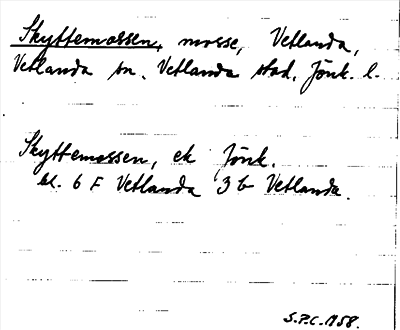 Skyttemossen, mosse, Vetlanda,
Vetlanda sn, Vetlanda stad, Jönk. l.
Skyttemossen, ek Jönk.
bl. 6 F Vetlanda 3 b Vetlanda.
S.P.C. 1958.